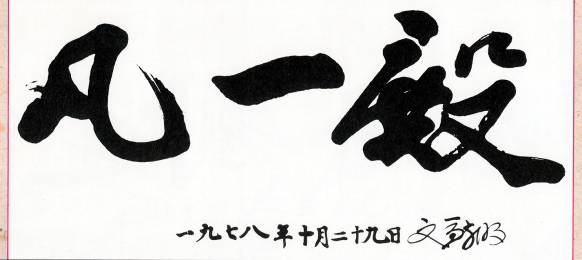 凡一
一九七八年十月二十九日 文